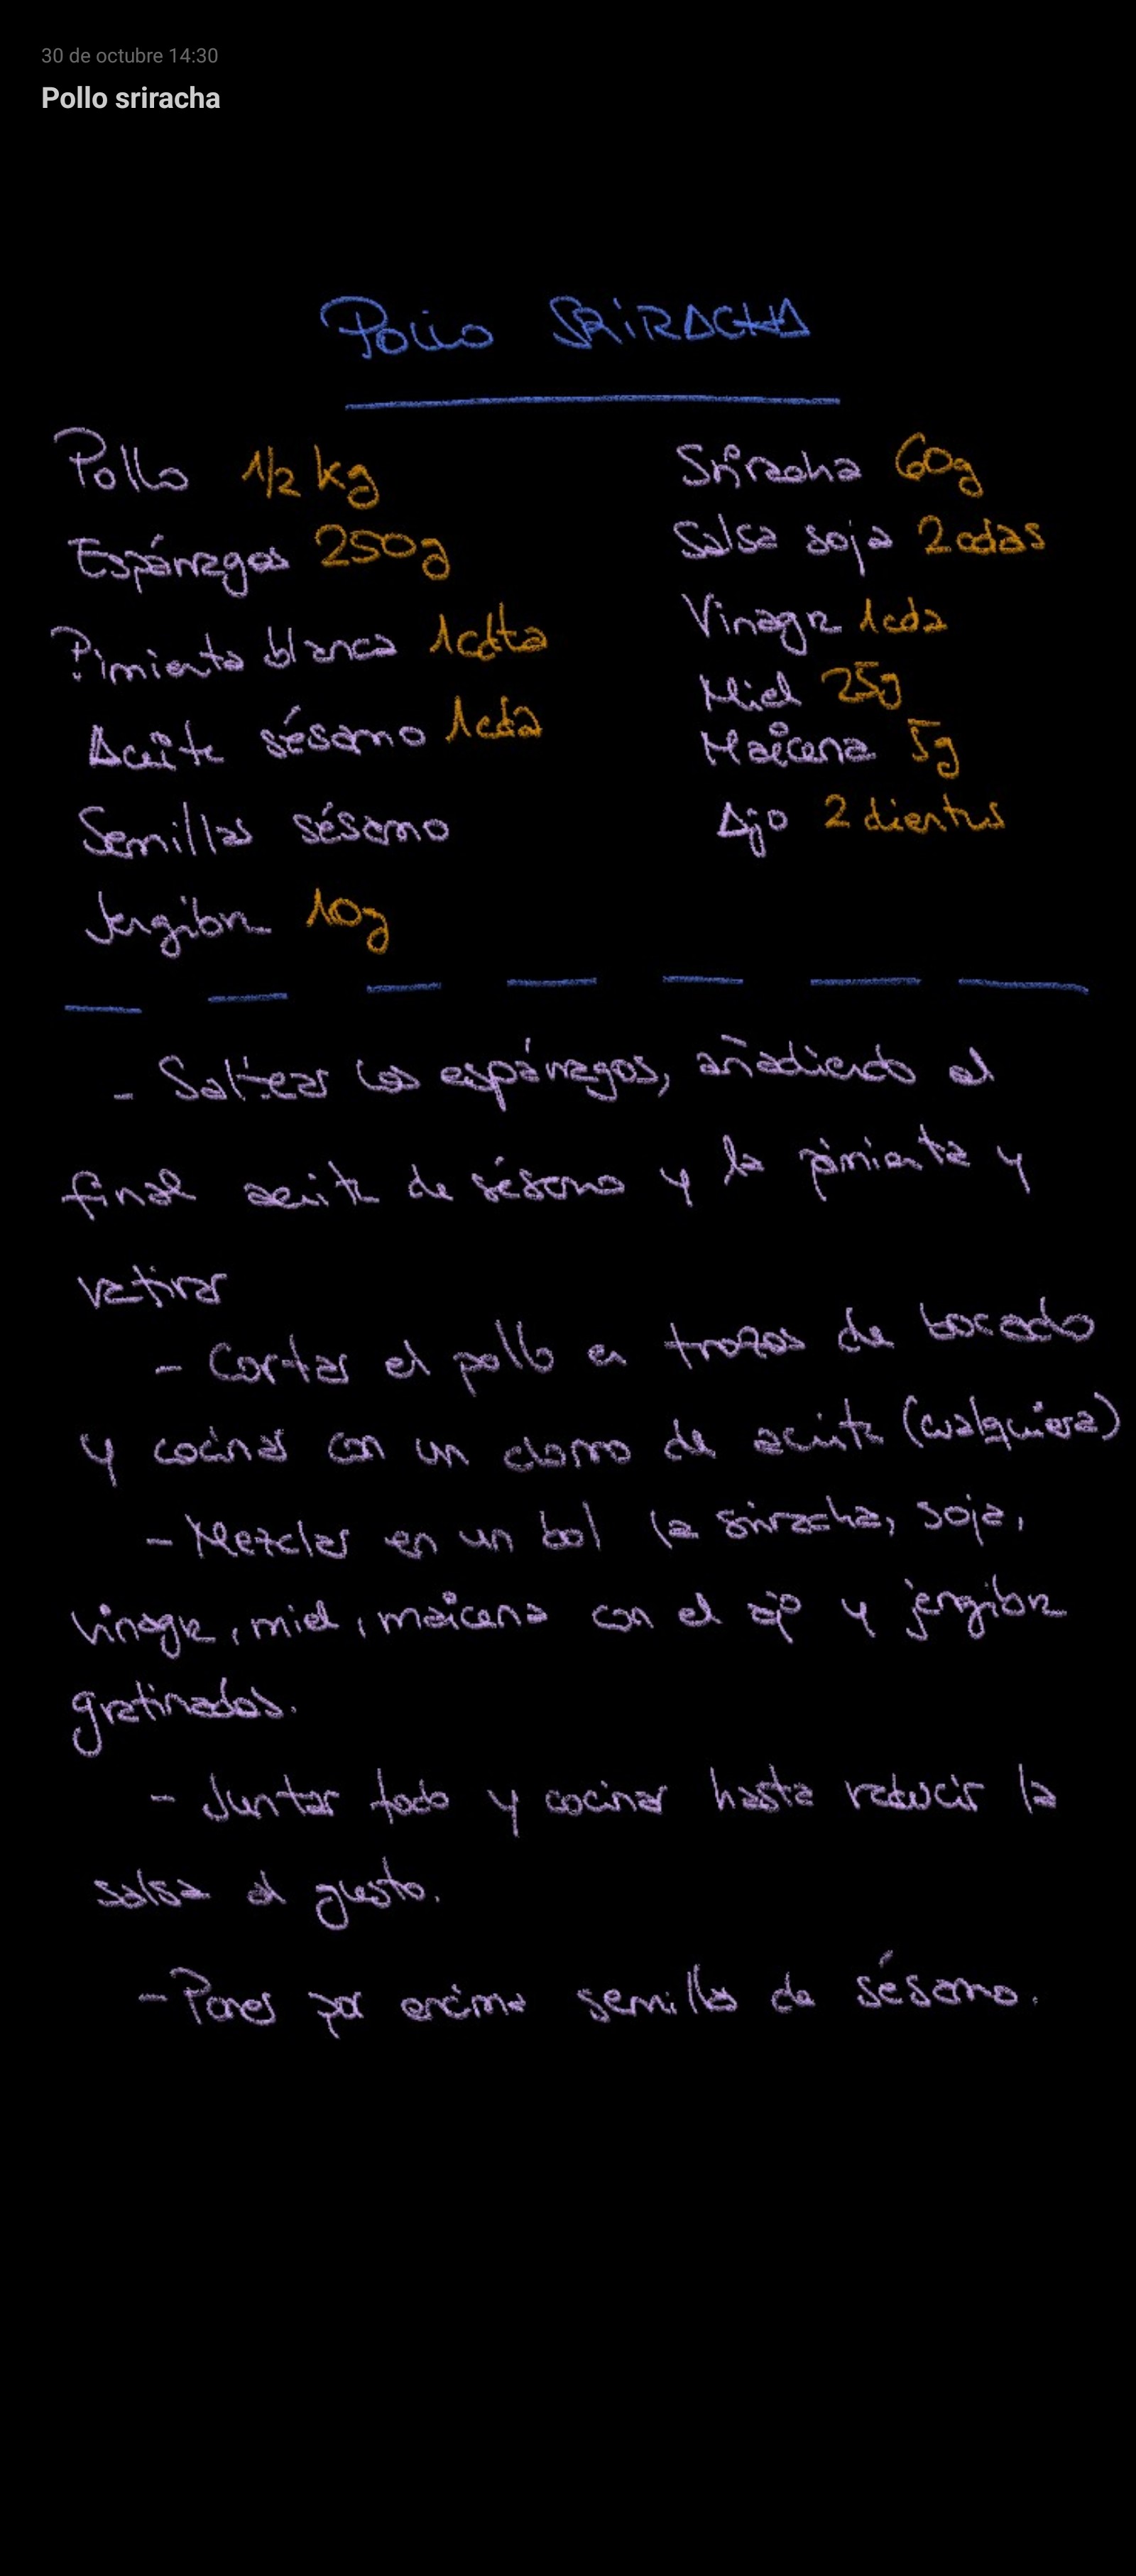 30 de octubre 14:30
Pollo sriracha
Pollo SRIRACHA
Pollo 1/2 kg
Espárragos 250g
Pimienta blanca 1cdta
Aceite sésamo 1cda
Semillas sésamo
Jengibre 10g
Sriracha 60g
Salsa soja 2cdas
Vinagre 1cda
Miel 25g
Maicena 5g
Ajo 2 dientes
- Saltear los espárragos, añadiendo al
final aceite de sésamo y la pimienta y
retirar
- Cortar el pollo en trozos de bocado
y cocinar con un chorro de aceite (cualquiera)
- Mezclar en un bol la sriracha, soja,
vinagre, miel, maicena con el ajo y jengibre
gratinados.
- Juntar todo y cocinar hasta reducir la
salsa al gusto.
- Poner por encima semillas de sésamo.